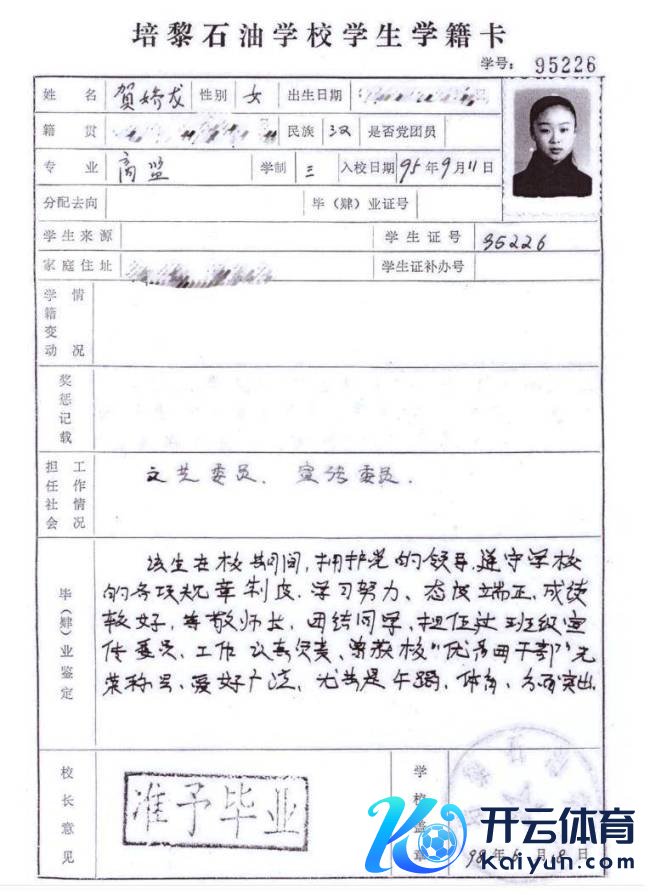 培黎石油学校学生学籍卡
学号: 95226
姓 名 贺娇龙 性别 女 出生日期
籍 贯 民族 汉 是否党团员
专 业 商监 学制 三 入校日期 95年9月11日
分配去向 毕（肄）业证号
学生来源 学生证号 95226
家庭住址 学生证补办号
学籍变动情况
奖惩记载
担任社会工作情况 文艺委员、宣传委员.
毕（肄）业鉴定
该生在校期间,拥护党的领导,遵守学校
的各项规章制度.学习努力、态度端正,成绩
较好,尊敬师长,团结同学,担任过班级宣
传委员、工作认真负责,曾获校"优秀团干部"光
荣称号、爱好广泛,尤其是午蹈,体育,方面突出.
校长意见 准予毕业
学校盖章
98年6月8日
开云体育
Kaiyun.com